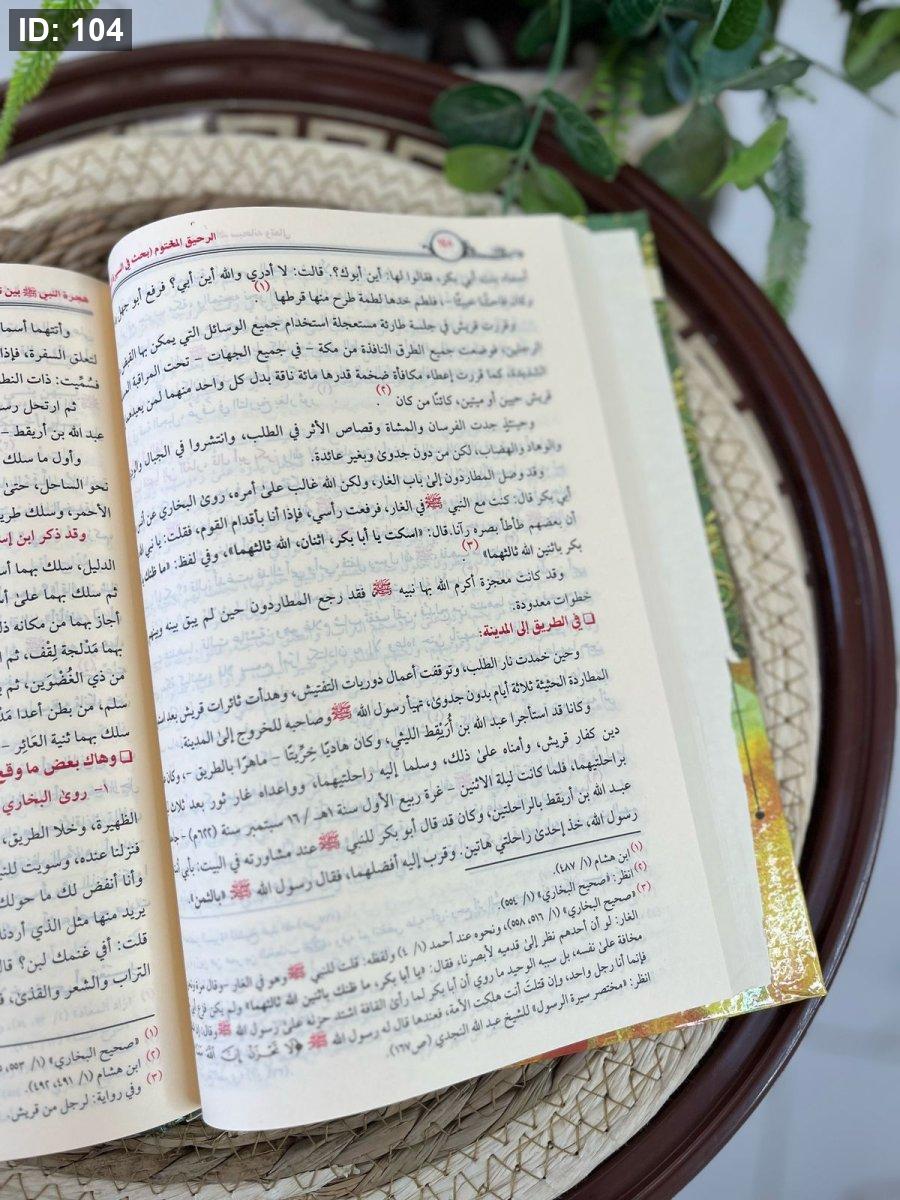 ID: 104
الرحيق المختوم (بحث في
أسماء بنت أبي بكر، فقالوا لها: أين أبوك؟. قالت: لا أدري والله أين أبي؟ فرفع أبو جهل
وكان فاحشًا خبيثًا – فلطم خدها لطمة طرح منها قرطها (١)
وقررت قريش في جلسة طارئة مستعجلة استخدام جميع الوسائل التي يمكن بها القبض
الرجلين، فوضعت جميع الطرق النافذة من مكة – في جميع الجهات – تحت المراقبة
الشديدة، كما قررت إعطاء مكافأة ضخمة قدرها مائة ناقة بدل كل واحد منهما لمن يعيدهما
قريش حيين أو ميتين، كائنًا من كان (٢).
وحينئذٍ جدت الفرسان والمشاة وقصاص الأثر في الطلب، وانتشروا في الجبال
والوهاد والهضاب، لكن من دون جدوى وبغير عائدة.
وقد وصل المطاردون إلى باب الغار، ولكن الله غالب على أمره، روى البخاري عن
أبي بكر قال: كنت مع النبي ﷺ في الغار، فرفعت رأسي، فإذا أنا بأقدام القوم، فقلت: يا نبي
أن بعضهم طأطأ بصره رآنا.قال: «اسكت يا أبا بكر، اثنان، الله ثالثهما»، وفي لفظ: «ما ظنك
بكر باثنين الله ثالثهما» (٣)
وقد كانت معجزة أكرم الله بها نبيه ﷺ فقد رجع المطاردون حين لم يبق بينه
خطوات معدودة.
❑ في الطريق إلى المدينة:
وحين خمدت نار الطلب، وتوقفت أعمال دوريات التفتيش، وهدأت ثائرات قريش بعد
المطاردة الحثيثة ثلاثة أيام بدون جدوى، تهيأ رسول الله ﷺ وصاحبه للخروج إلى المدينة.
وكانا قد استأجرا عبد الله بن أُرَيْقِط الليثي، وكان هاديًا خِرِّيتًا – ماهرًا بالطريق –،
دين كفار قريش، وأمناه على ذلك، وسلما إليه راحلتيهما، وواعداه غار ثور بعد ثلاث
براحلتيهما، فلما كانت ليلة الاثنين – غرة ربيع الأول سنة ١هـ /١٦ سبتمبر سنة (٦٢٢م) –
عبد الله بن أريقط بالراحلتين، وكان قد قال أبو بكر للنبي ﷺ عند مشاورته في البيت: بأبي
رسول الله، خذ إحدى راحلتي هاتين. وقرب إليه أفضلهما، فقال رسول الله ﷺ «بالثمن».
(١) ابن هشام (١/ ٤٨٧).
(٢) انظر: «صحيح البخاري» (١/ ٥٥٤).
(٣) «صحيح البخاري» (١/ ٥١٦، ٥٥٨)، ونحوه عند أحمد (١/ ٤) ولفظه: قلت للنبي ﷺ وهو في الغار –
الغار: لو أن أحدهم نظر إلى قدميه لأبصرنا، فقال: «يا أبا بكر، ما ظنك باثنين الله ثالثهما» ولم يكن
مخافة على نفسه، بل سببه الوحيد ما روي أن أبا بكر لما رأى القافة اشتد حزنه على رسول الله ﷺ وقال:
فإنما أنا رجل واحد، وإن قتلتَ أنت هلكت الأمة، فعندها قال له رسول الله ﷺ ﴿لا تحزن إن الله
انظر: «مختصر سيرة الرسول» للشيخ عبد الله النجدي (ص١٦٧).
هجرة النبي ﷺ بين
وأتتهما
لتعلق السفرة، فإذا
فسُمِّيت: ذات
ثم ارتحل
عبد الله بن أريقط –
وأول ما سلك
نحو الساحل، حتى
الأحمر، وسلك
وقد ذكر ابن
الدليل، سلك بهما
ثم سلك بهما على
أجاز بهما من مكانه
بهما مَدْلجة لِقْف، ثم
من ذي الغُضْوَين، ثم
سلم، من بطن أعدا
سلك بهما ثنية العَائِر –
❑ وهاك بعض ما وقع
١- روى البخاري
الظهيرة، وخلا الطريق،
فنزلنا عنده، وسويت
وأنا أنفض لك ما حولك
يريد منها مثل الذي أردنا
قلت: أفي غنمك لبن؟
التراب والشعر والقذى،
(١) «صحيح البخاري» (١/ ٥٥٣،
(٢) ابن هشام (١/ ٤٩١، ٤٩٢).
(٣) وفي رواية: لرجل من قريش.